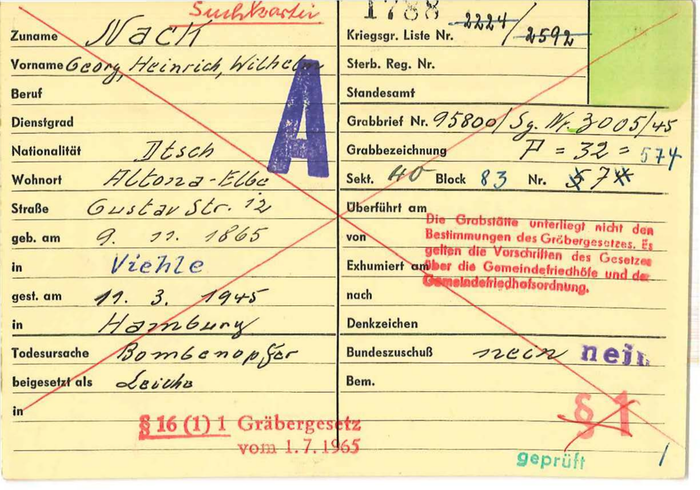 Suchkartei
Zuname Nack
Vorname Georg, Heinrich, Wilhelm
Beruf
Dienstgrad
Nationalität Dtsch
Wohnort Altona-Elbe
Straße Gustav Str. 12
geb. am 9. 11. 1865
in Viehle
gest. am 11. 3. 1945
in Hamburg
Todesursache Bombenopfer
beigesetzt als Leiche
in
A
§ 16 (1) 1 Gräbergesetz
vom 1.7.1965
1788
Kriegsgr. Liste Nr. 2224/2592
Sterb. Reg. Nr.
Standesamt
Grabbrief Nr. 95800/Sg. Nr. 3005/45
Grabbezeichnung F = 32 = 574
Sekt. 40 Block 83 Nr.
Überführt am
von
Exhumiert am
nach
Denkzeichen
Die Grabstätte unterliegt nicht den
Bestimmungen des Gräbergesetzes. Es
gelten die Vorschriften des Gesetzes
über die Gemeindefriedhöfe und der
Gemeindefriedhofsordnung.
Bundeszuschuß nein nein
Bem.
§ 1
geprüft